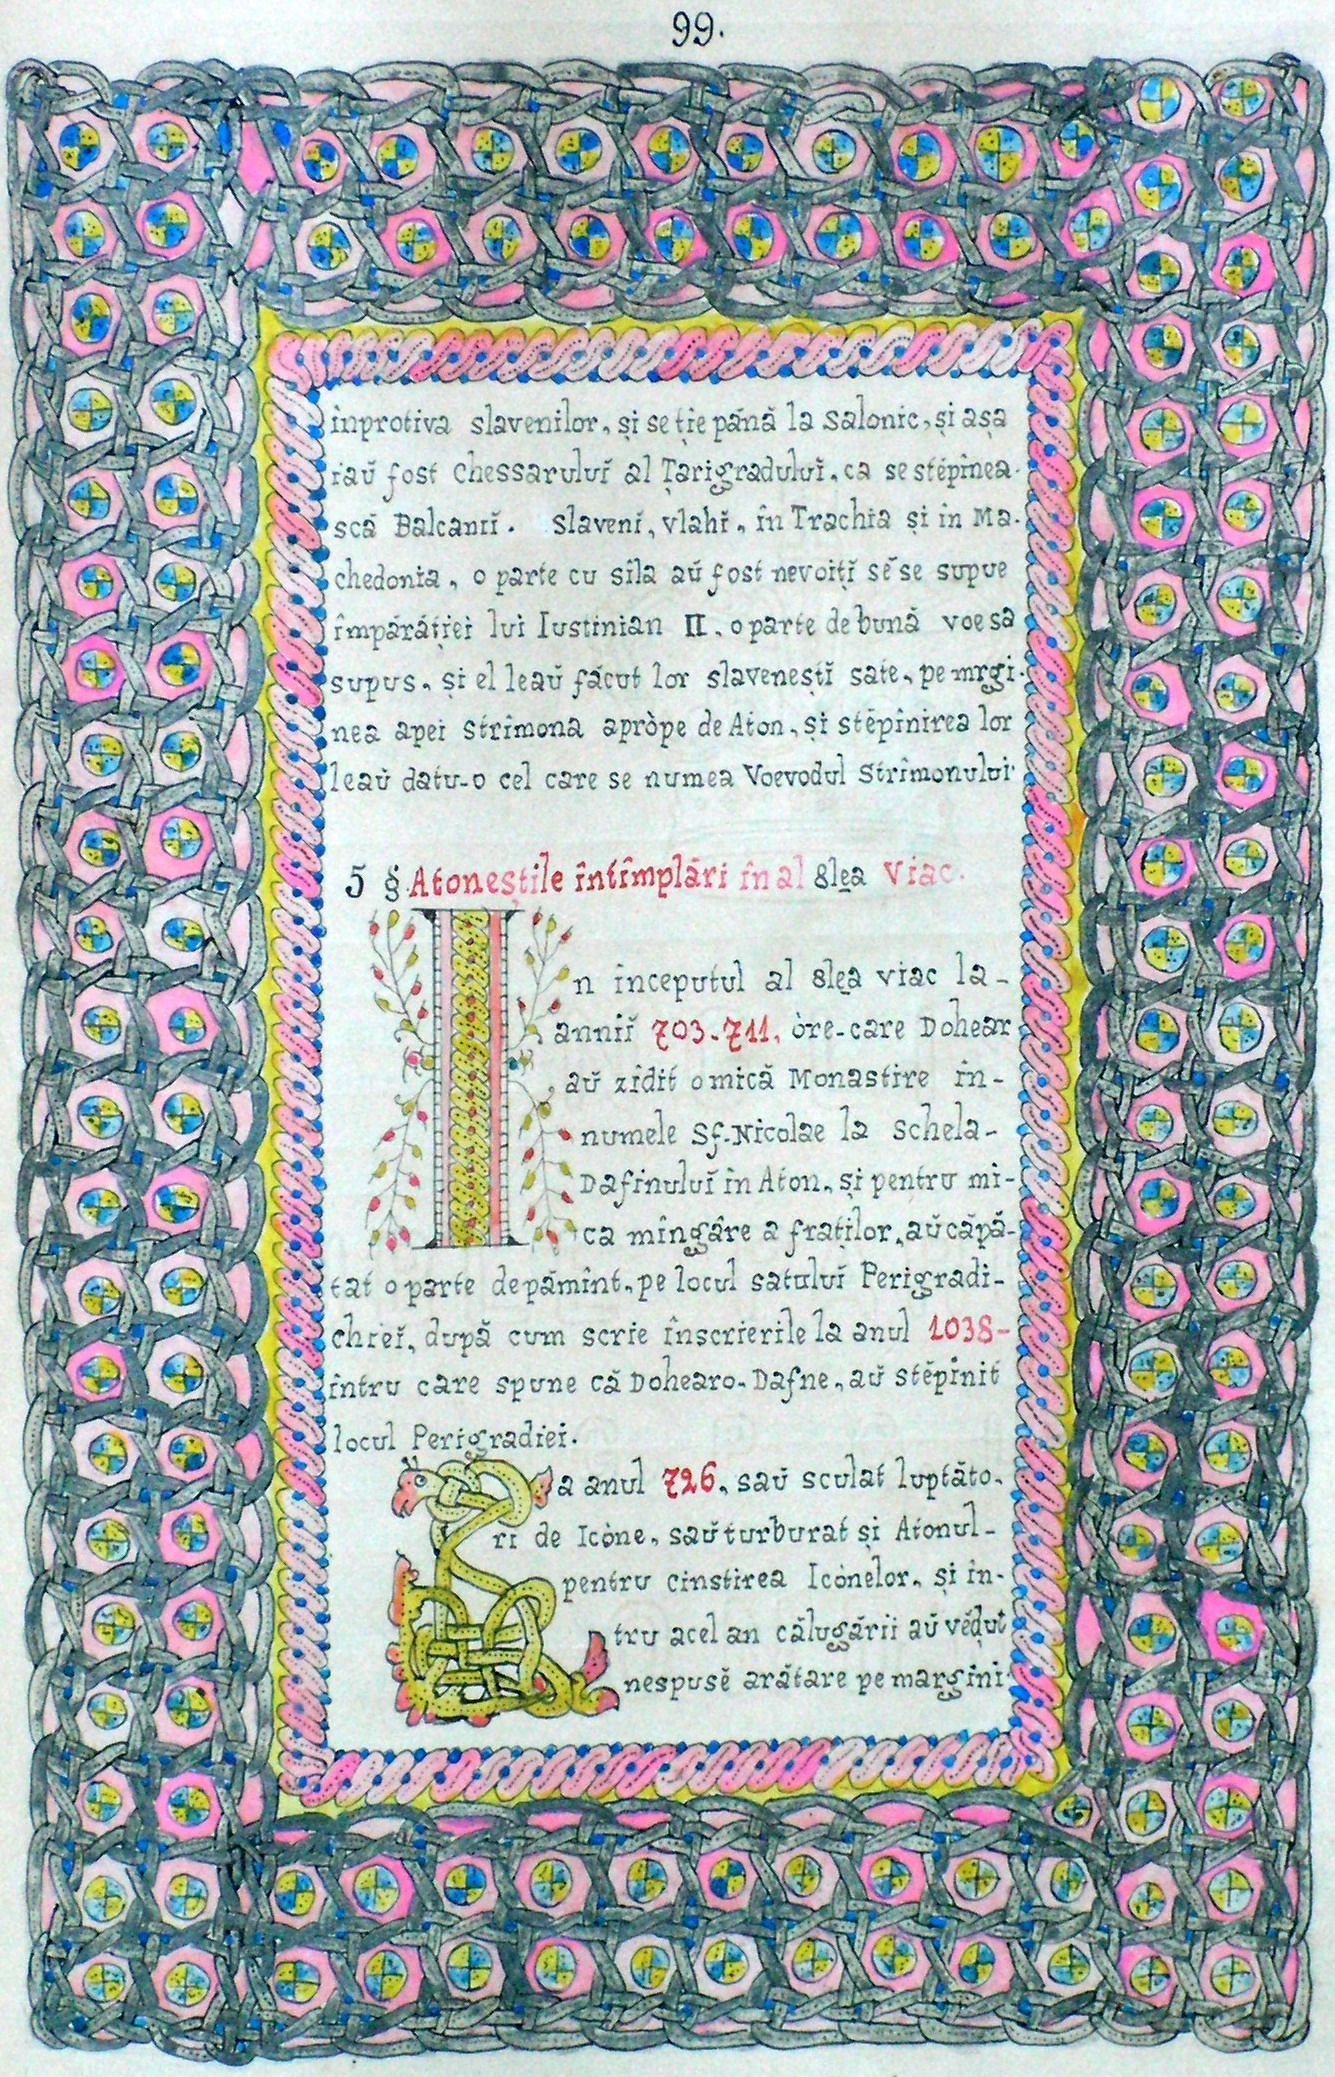 99.
înprotiva slavenilor, și se ție până la Salonic, și așa
iaŭ fost Chessaruluĭ al Țarigraduluĭ, ca se stĕpînea-
scă Balcaniĭ. Slavenĭ, vlahĭ, în Trachia și în Ma-
chedonia, o parte cu sila aŭ fost nevoițĭ sĕ se supue
împărățieĭ luĭ Iustinian II, o parte de bună voe sa
supus, și el leaŭ făcut lor slaveneștĭ sate, pe mrgi-
nea apeĭ Strîmona apròpe de Aton, și stĕpînirea lor
leaŭ datu-o cel care se numea Voevodul Strîmonuluĭ
5 § Atoneștile întîmplări în al 8lea Viac.
In începutul al 8lea viac la-
anniĭ 703-711, òre-care Dohear
aŭ zidit o mică Monastire în-
numele Sf. Nicolae la Schela-
Dafinuluĭ în Aton, și pentru mi-
ca mîngâre a fraților, aŭ căpă-
tat o parte de pămînt, pe locul satuluĭ Perigradi-
chieĭ, după cum scrie înscrierile la anul 1038-
întru care spune că Dohearo-Dafne, aŭ stĕpînit
locul Perigradieĭ.
La anul 726, saŭ sculat luptăto-
ri de Icòne, saŭ turburat și Atonul-
pentru cinstirea Icònelor, și în-
tru acel an călugării aŭ vĕdut
nespusĕ arătare pe margini